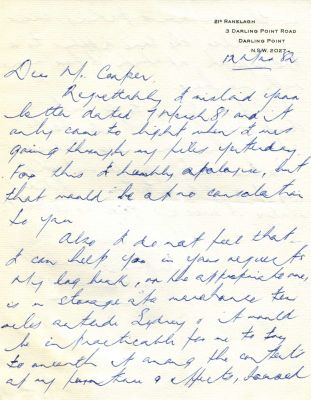 21ᴮ RANELAGH
3 DARLING POINT ROAD
DARLING POINT
N.S.W. 2027
12 Mar 82
Dear Mr. Cooper.
Regrettably I mislaid your
letter dated 7 March 81 and it
only came to light when I was
going through my files yesterday.
For this I humbly apologise, but
that would be of no consolation
to you
Also I do not feel that
I can help you in your requests
My log book, or the appropriate one,
is in storage at a warehouse ten
miles outside Sydney & it would
be impracticable for me to try
to unearth it among the contents
of my furniture & effects,